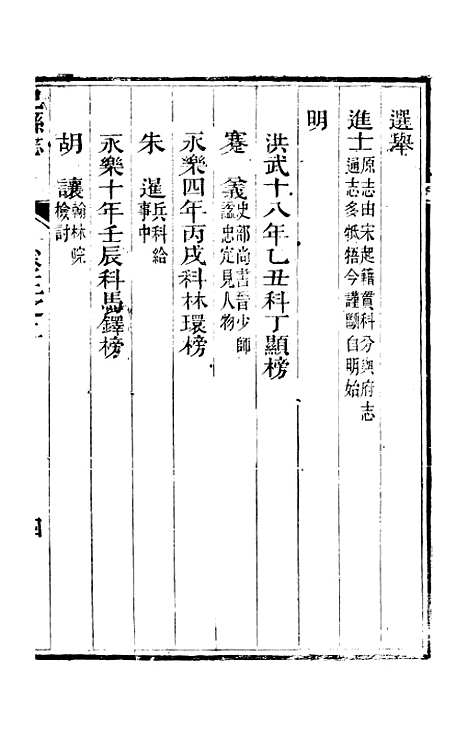 選舉
進士原志由宋起籍貫科分與府志
通志多牴牾今謹斷自明始
明
洪武十八年乙丑科丁顯榜
蹇義吏部尚書晉少師
謚忠定見人物
永樂四年丙戌科林環榜
朱暹兵科給
事中
永樂十年壬辰科馬鐸榜
胡讓翰林院
檢討
四